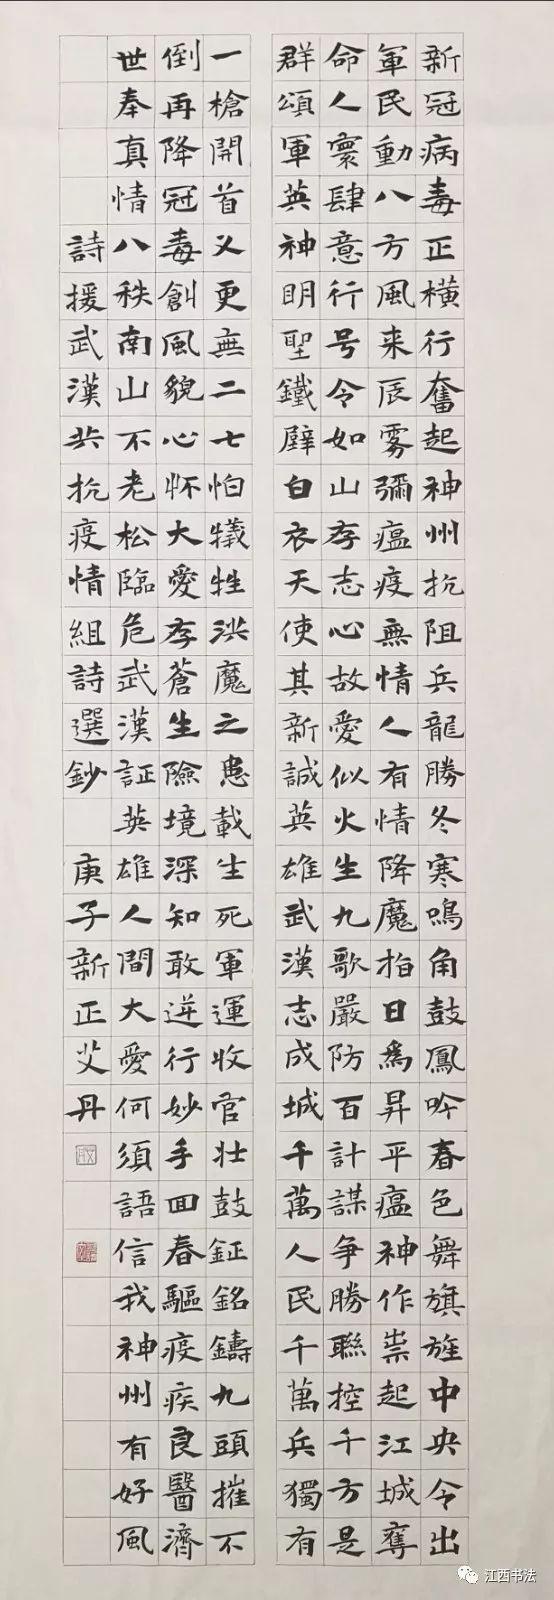 新冠病毒正橫行奮起神州抗阻兵龍勝冬寒鳴角鼓鳳吟春色舞旗旌中央令出
軍民動八方風来辰雾彌瘟疫無情人有情降魔拍日爲昇平瘟神作祟起江城奪
命人寰肆意行号令如山存志心故愛似火生九歌嚴防百計謀争勝聯控千方是
群頌軍英神明聖鐵壁白衣天使其新誠英雄武漢志成城千萬人民千萬兵獨有
一槍開首义更無二七怕犠牲洪魔之患載生死軍運收官壮鼓鉦銘鑄九頭摧不
倒再降冠毒創風貌心怀大愛存蒼生險境深知敢逆行妙手回春驅疫疾良醫濟
世奉真情八秩南山不老松臨危武漢証英雄人間大愛何須語信我神州有好風
詩援武漢共抗疫情組詩選鈔 庚子新正艾丹
江西书法